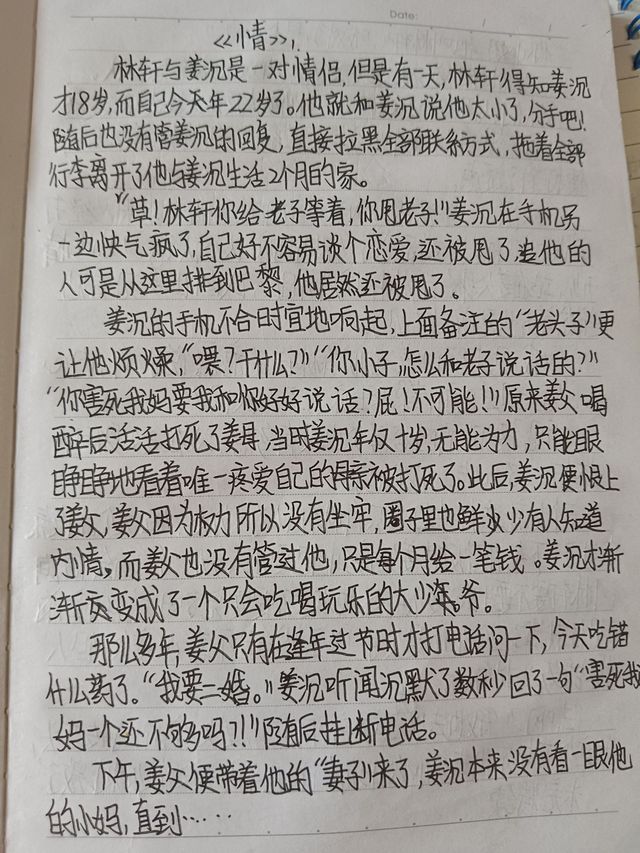 Date:
<<情>>.
林轩与姜沉是一对情侣,但是有一天,林轩得知姜沉
才18岁,而自己今天年22岁了。他就和姜沉说他太小了,分手吧!
随后也没有管姜沉的回复,直接拉黑全部联系方式,拖着全部
行李离开了他与姜沉生活2个月的家。
“草!林轩你给老子等着,你甩老子!”姜沉在手机另
一边快气疯了,自己好不容易谈个恋爱,还被甩了,追他的
人可是从这里排到巴黎,他居然还被甩了。
姜沉的手机不合时宜地响起,上面备注的“老头子”更
让他烦燥,“喂?干什么?”“你小子,怎么和老子说话的?”
“你害死我妈要我和你好好说话?屁!不可能!”原来姜父喝
醉后活活打死了姜母,当时姜沉年仅十岁,无能为力,只能眼
睁睁地看着唯一疼爱自己的母亲被打死了。此后,姜沉便恨上
了姜父,姜父因为权力所以没有坐牢,圈子里也鲜少有人知道
内情。而姜父也没有管过他,只是每个月给一笔钱。姜沉才渐
渐变成了一个只会吃喝玩乐的大少爷。
那么多年,姜父只有在逢年过节时才打电话问一下,今天吃错
什么药了。“我要二婚。”姜沉听闻沉默了数秒回了一句“害死我
妈一个还不够多吗?!”随后挂断电话。
下午,姜父便带着他的“妻子”来了,姜沉本来没有看一眼他
的小妈,直到……